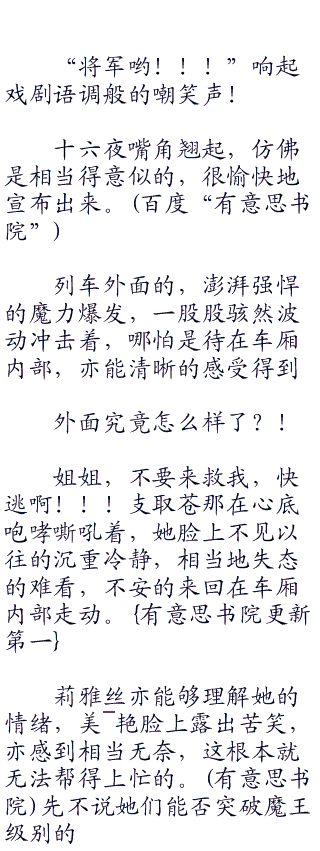 “将军哟！！！”响起
戏剧语调般的嘲笑声！
十六夜嘴角翘起，仿佛
是相当得意似的，很愉快地
宣布出来。(百度“有意思书
院”)
列车外面的，澎湃强悍
的魔力爆发，一股股骇然波
动冲击着，哪怕是待在车厢
内部，亦能清晰的感受得到
外面究竟怎么样了？！
姐姐，不要来救我，快
逃啊！！！支取苍那在心底
咆哮嘶吼着，她脸上不见以
往的沉重冷静，相当地失态
的难看，不安的来回在车厢
内部走动。{有意思书院更新
第一}
莉雅丝亦能够理解她的
情绪，美¯艳脸上露出苦笑，
亦感到相当无奈，这根本就
无法帮得上忙的。(有意思书
院)先不说她们能否突破魔王
级别的